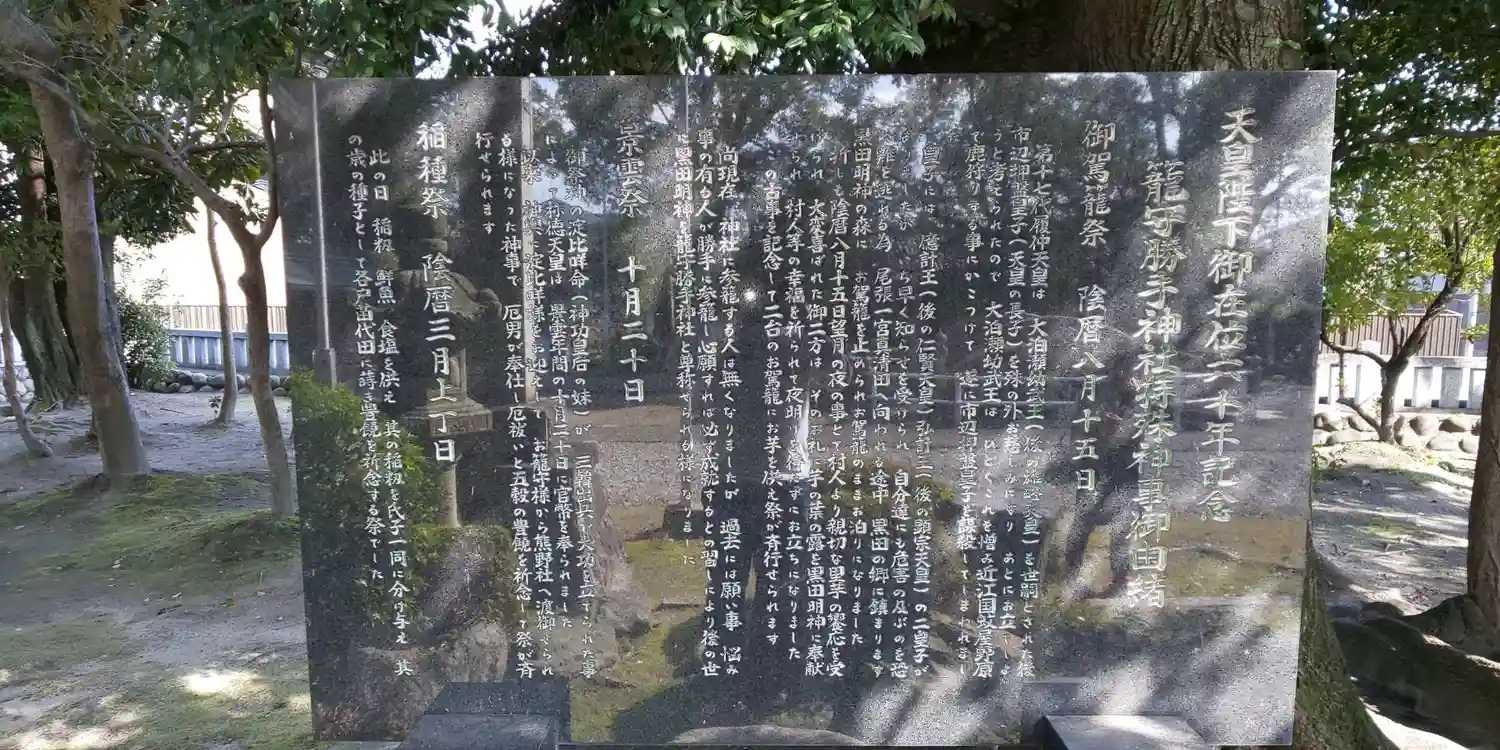 天皇陛下御在位六十年記念
籠守勝手神社特殊神事御由緒
御駕籠祭 陰暦八月十五日
第十七代履仲天皇は 大泊瀬幼武王(後の雄略天皇)を世嗣とされた後
市辺押磐皇子(天皇の長子)を殊の外お慈しみになり あとにお立てしよ
うと考えられたので 大泊瀬幼武王は ひどくこれを憎み近江国蚊屋野原
で鹿狩りする事にかこつけて 遂に市辺押磐皇子を謀殺してしまわれまし
皇子には 億計王(後の仁賢天皇)弘計王(後の顕宗天皇)の二皇子が
いち早く知らせを受けられ 自分達にも危害の及ぶのを恐
難を逃れる為 尾張一宮真清田へ向われる途中 黒田の郷に鎮まります
黒田明神の森に お駕籠を止められお駕籠のままお泊りになりました
折しも陰暦八月十五日望月の夜の事とて村人より親切な里芋の饗応を受
けられ 大変喜ばれた御二方は そのお礼に芋の葉の露を黒田明神に奉献
られ 村人等の幸福を祈られて夜明けを待たずにお立ちになりました
この古事を記念して二台のお駕籠にお芋を供え祭が斉行せられます
尚現在 神社に参籠する人は無くなりましたが 過去には願い事 悩み
事の有る人が勝手に参籠し心願すれば必ず成就するとの習しにより後の世
に黒田明神を籠守勝手神社と尊称せられる様になりました
景雲祭 十月二十日
御祭神の淀比咩命(神功皇后の妹)が 三韓出兵に大功を立てられた事
によって称徳天皇は 景雲年間の十月二十日に官幣を奉られました
以来 淀比咩様をお迎えして お籠守様から熊野社へ渡御せられ
る様になった神事で 厄男が奉仕し厄祓いと五穀の豊饒を祈念して祭が斉
行せられます
稲種祭 陰暦三月上丁日
此の日 稲籾 鮮魚 食塩を供え 其の稲籾を氏子一同に分け与え 其
の歳の種子として各戸苗代田に蒔き豊饒を祈念する祭でした